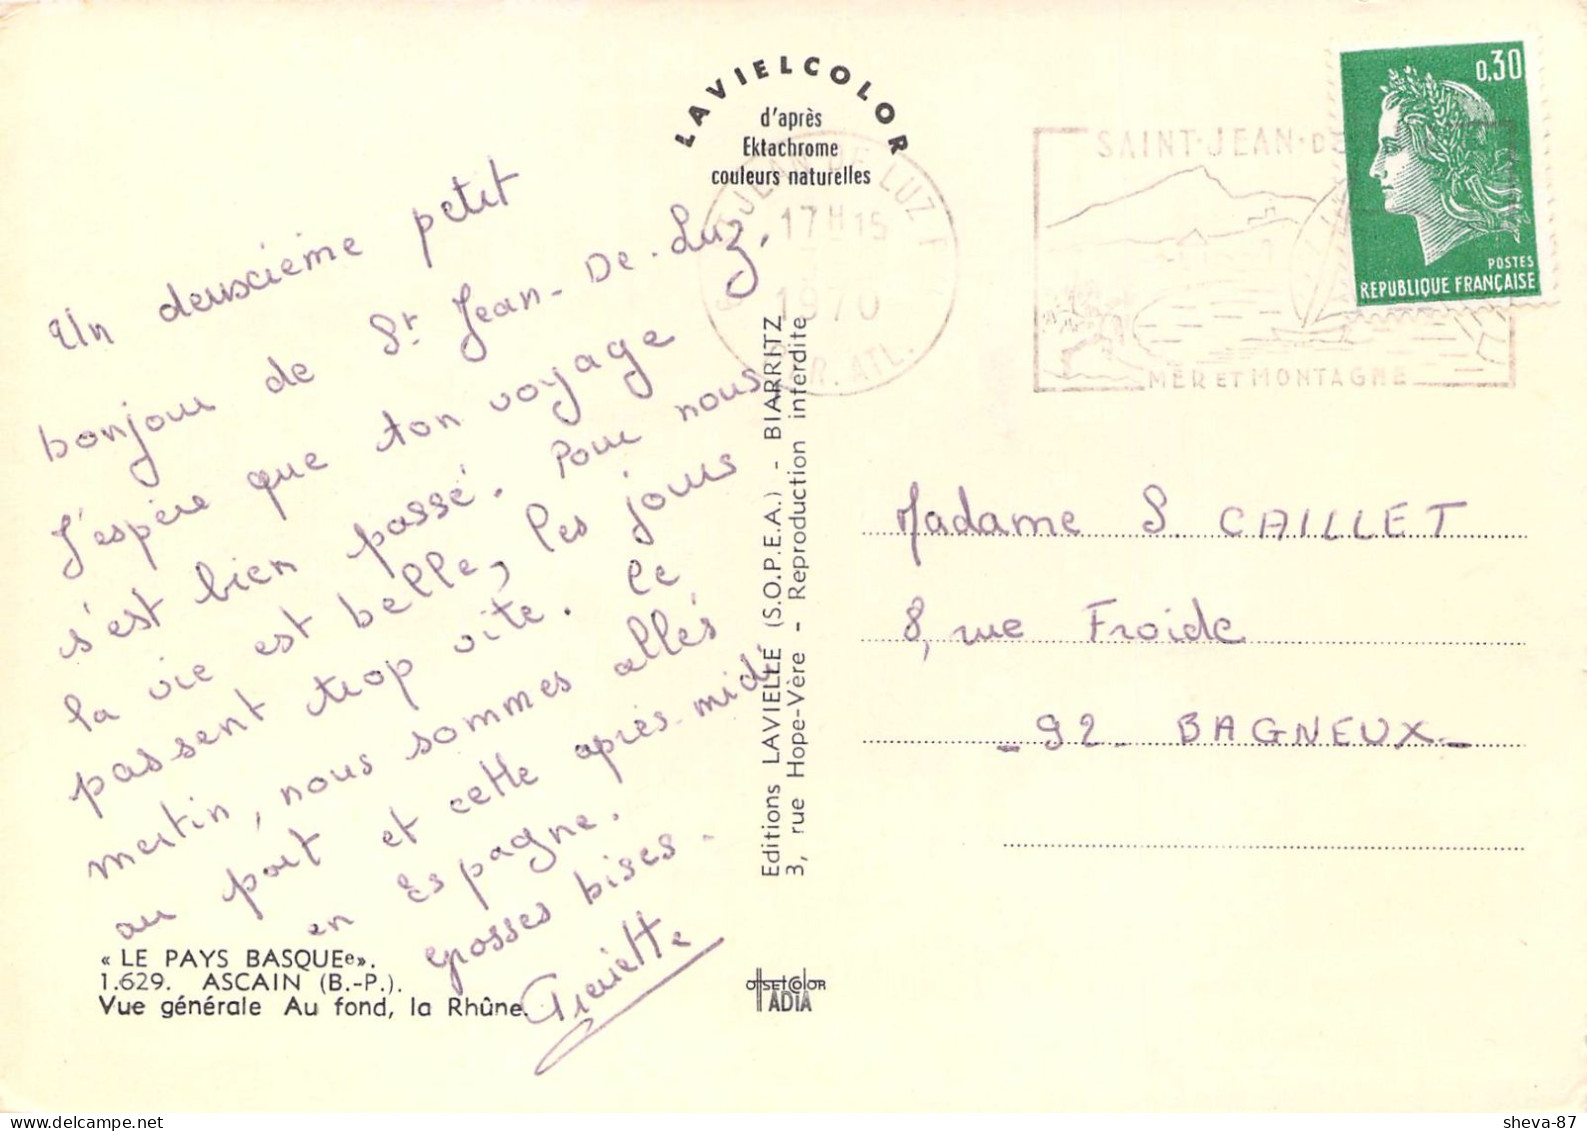 LAVIELCOLOR
d'après
Ektachrome
couleurs naturelles
Un deuxcième petit
bonjour de St Jean-De-Luz,
J'espère que ton voyage
s'est bien passé. Pour nous
la vie est belle, les jours
passent trop vite. Ce
matin, nous sommes allés
au port et cette après-midi
en Espagne.
grosses bises.
« LE PAYS BASQUEe».
1.629. ASCAIN (B.-P.).
Vue générale Au fond, la Rhûne.
Editions LAVIELLE (S.O.P.E.A.) - BIARRITZ
3, rue Hope-Vère - Reproduction interdite
OFFSETCOLOR
IADIA
ST JEAN DE LUZ
17 H 15
1970
ATL.
SAINT-JEAN-DE
MER ET MONTAGNE
0,30
POSTES
REPUBLIQUE FRANÇAISE
Madame S. CAILLET
8, rue Froide
- 92 - BAGNEUX -
sheva-87